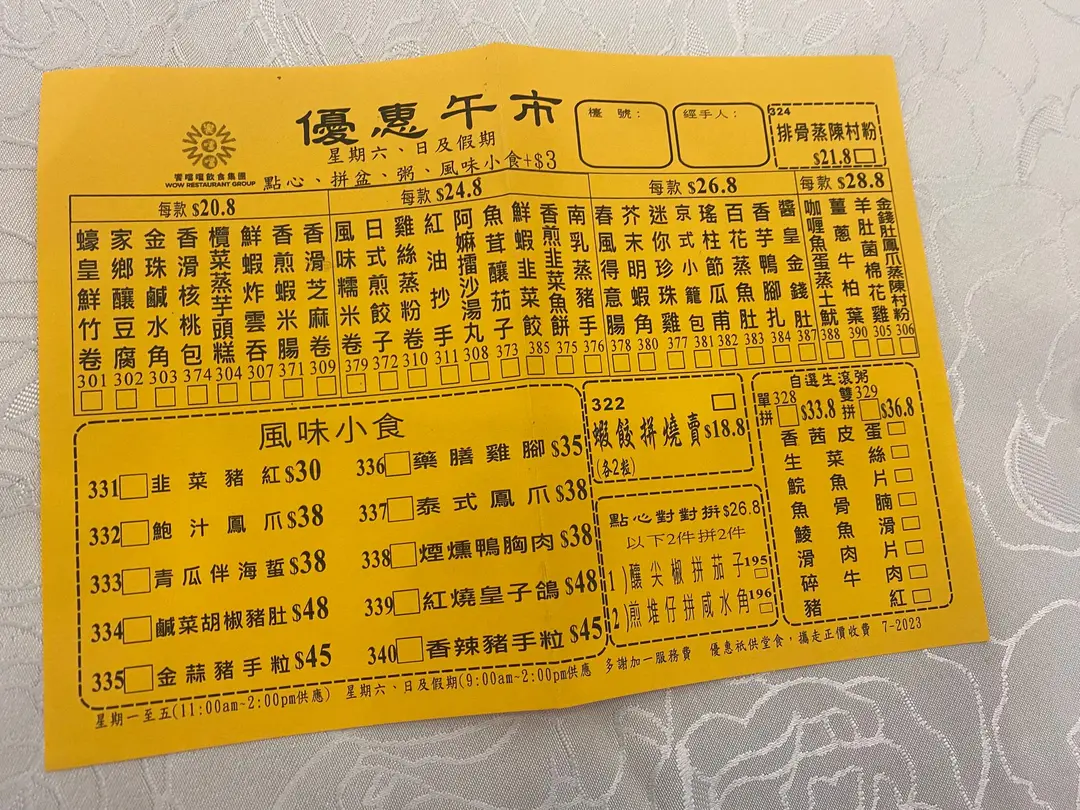 優惠午市
星期六、日及假期
點心、拼盆、粥、風味小食+$3
饗噹噹飲食集團
WOW RESTAURANT GROUP
檯號：
經手人：
324
排骨蒸陳村粉
$21.8
每款 $20.8
蠔皇鮮竹卷 301
家鄉釀豆腐 302
金珠鹹水角 303
香滑核桃包 374
欖菜蒸芋頭糕 304
鮮蝦炸雲吞 307
香煎蝦米腸 371
香滑芝麻卷 309
每款 $24.8
風味糯米卷 379
日式煎餃子 372
雞絲蒸粉卷 310
紅油抄手 311
阿嫲擂沙湯丸 308
魚茸釀茄子 373
鮮蝦韭菜餃 385
香煎韭菜魚餅 375
南乳蒸豬手 376
每款 $26.8
春風得意腸 378
芥末明蝦角 380
迷你珍珠雞 377
京式小籠包 381
瑤柱節瓜甫 382
百花蒸魚肚 383
香芋鴨腳扎 384
醬皇金錢肚 387
每款 $28.8
咖喱魚蛋蒸土魷 388
薑蔥牛柏葉 390
羊肚菌棉花雞 305
金錢肚鳳爪蒸陳村粉 306
風味小食
331 韭菜豬紅 $30
332 鮑汁鳳爪 $38
333 青瓜伴海蜇 $38
334 鹹菜胡椒豬肚 $48
335 金蒜豬手粒 $45
336 藥膳雞腳 $35
337 泰式鳳爪 $38
338 煙燻鴨胸肉 $38
339 紅燒皇子鴿 $48
340 香辣豬手粒 $45
322
蝦餃拼燒賣 $18.8
(各2粒)
點心對對拼 $26.8
以下2件拼2件
1)釀尖椒拼茄子 195
2)煎堆仔拼咸水角 196
自選生滾粥
單拼 328 $33.8 雙拼 329 $36.8
香茜皮蛋
生菜絲
鯇魚片
魚骨腩
鯪魚滑
滑肉片
碎牛肉
豬紅
星期一至五(11:00am~2:00pm供應) 星期六、日及假期(9:00am~2:00pm供應 多謝加一服務費 優惠祇供堂食，攜走正價收費 7-2023